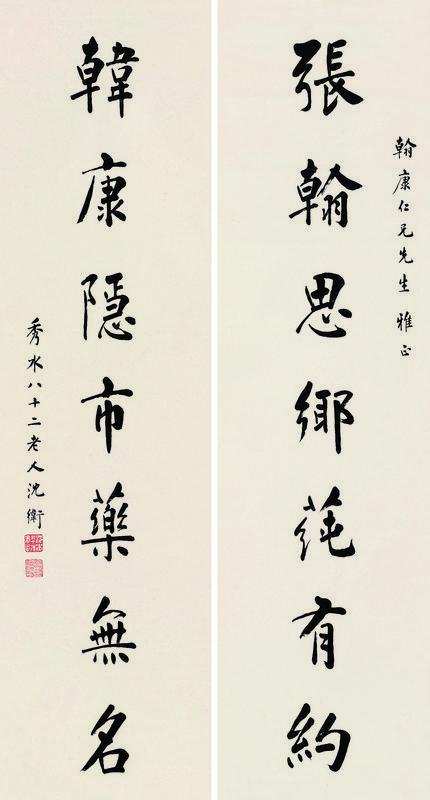 翰康仁兄先生 雅正
張翰思鄉蒓有約
韓康隱市藥無名
秀水八十二老人沈衛